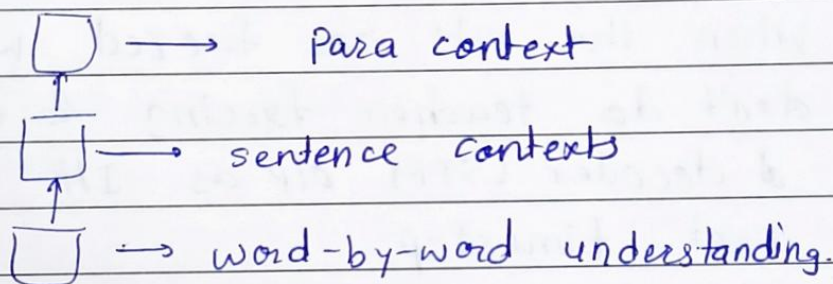 Para context
sentence contexts
word-by-word understanding.